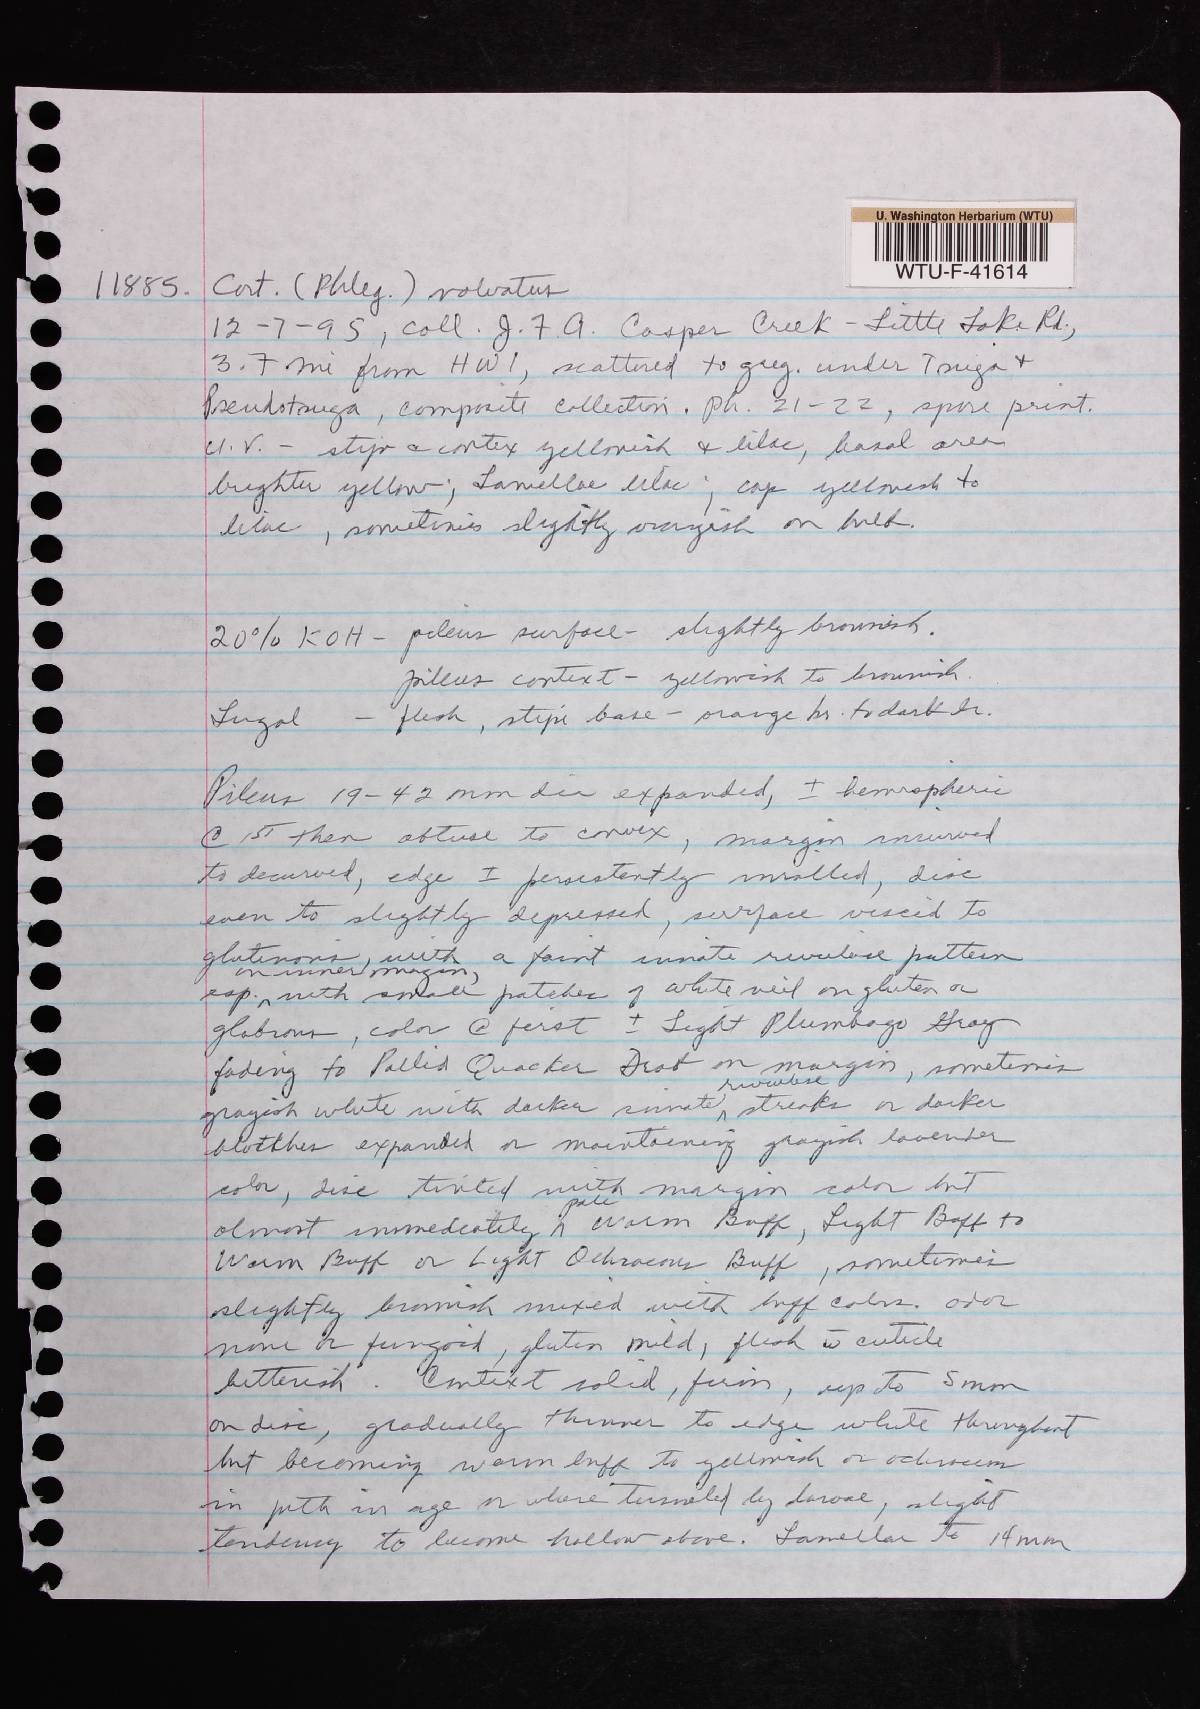 U. Washington Herbarium (WTU)
WTU-F-41614
11885. Cort. (Phleg.) volvatus
12-7-95, coll. J.F.A. Casper Creek - Little Lake Rd.,
3.7 mi from HW1, scattered to greg. under Tsuga +
Pseudotsuga, composite collection. Ph. 21-22, spore print.
U.V. - stipe & cortex yellowish & lilac, basal area
brighter yellow; Lamellae lilac; cap yellowish to
lilac, sometimes slightly orangish on bulb.
20% KOH - pileus surface - slightly brownish.
pileus context - yellowish to brownish.
Lugol - flesh, stipe base - orange br. to dark br.
Pileus 19-42 mm dia expanded, ± hemispheric
@ 1ST then obtuse to convex, margin incurved
to decurved, edge ± persistently inrolled, disc
even to slightly depressed, surface viscid to
glutinous, with a faint innate rivulose pattern
on inner margin,
esp. ^ with small patches of white veil on gluten or
glabrous, color @ first ± Light Plumbago Gray
fading to Pallid Quacker Drab on margin, sometimes
rivulose
grayish white with darker innate ^ streaks or darker
blotches expanded or maintaening grayish lavender
color, disc tinted with margin color but
pale
almost immediately ^ Warm Buff, Light Buff to
Warm Buff or Light Ochraceous Buff, sometimes
slightly brownish mixed with buff colors. odor
none or fungoid, gluten mild, flesh w̄ cuticle
bitterish. Context solid, firm, up to 5mm
on disc, gradually thinner to edge white throughout
but becoming warm buff to yellowish or ochraceous
in pith in age or where tunneled by larvae, slight
tendency to become hollow above. Lamellae to 14mm